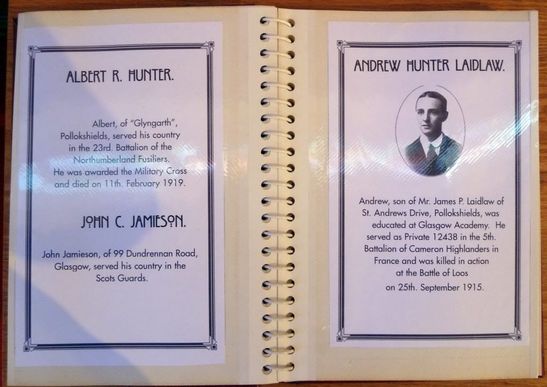 ALBERT R. HUNTER.
Albert, of "Glyngarth",
Pollokshields, served his country
in the 23rd. Battalion of the
Northumberland Fusiliers.
He was awarded the Military Cross
and died on 11th. February 1919.
JOHN C. JAMIESON.
John Jamieson, of 99 Dundrennan Road,
Glasgow, served his country in the
Scots Guards.
ANDREW HUNTER LAIDLAW.
Andrew, son of Mr. James P. Laidlaw of
St. Andrews Drive, Pollokshields, was
educated at Glasgow Academy. He
served as Private 12438 in the 5th.
Battalion of Cameron Highlanders in
France and was killed in action
at the Battle of Loos
on 25th. September 1915.